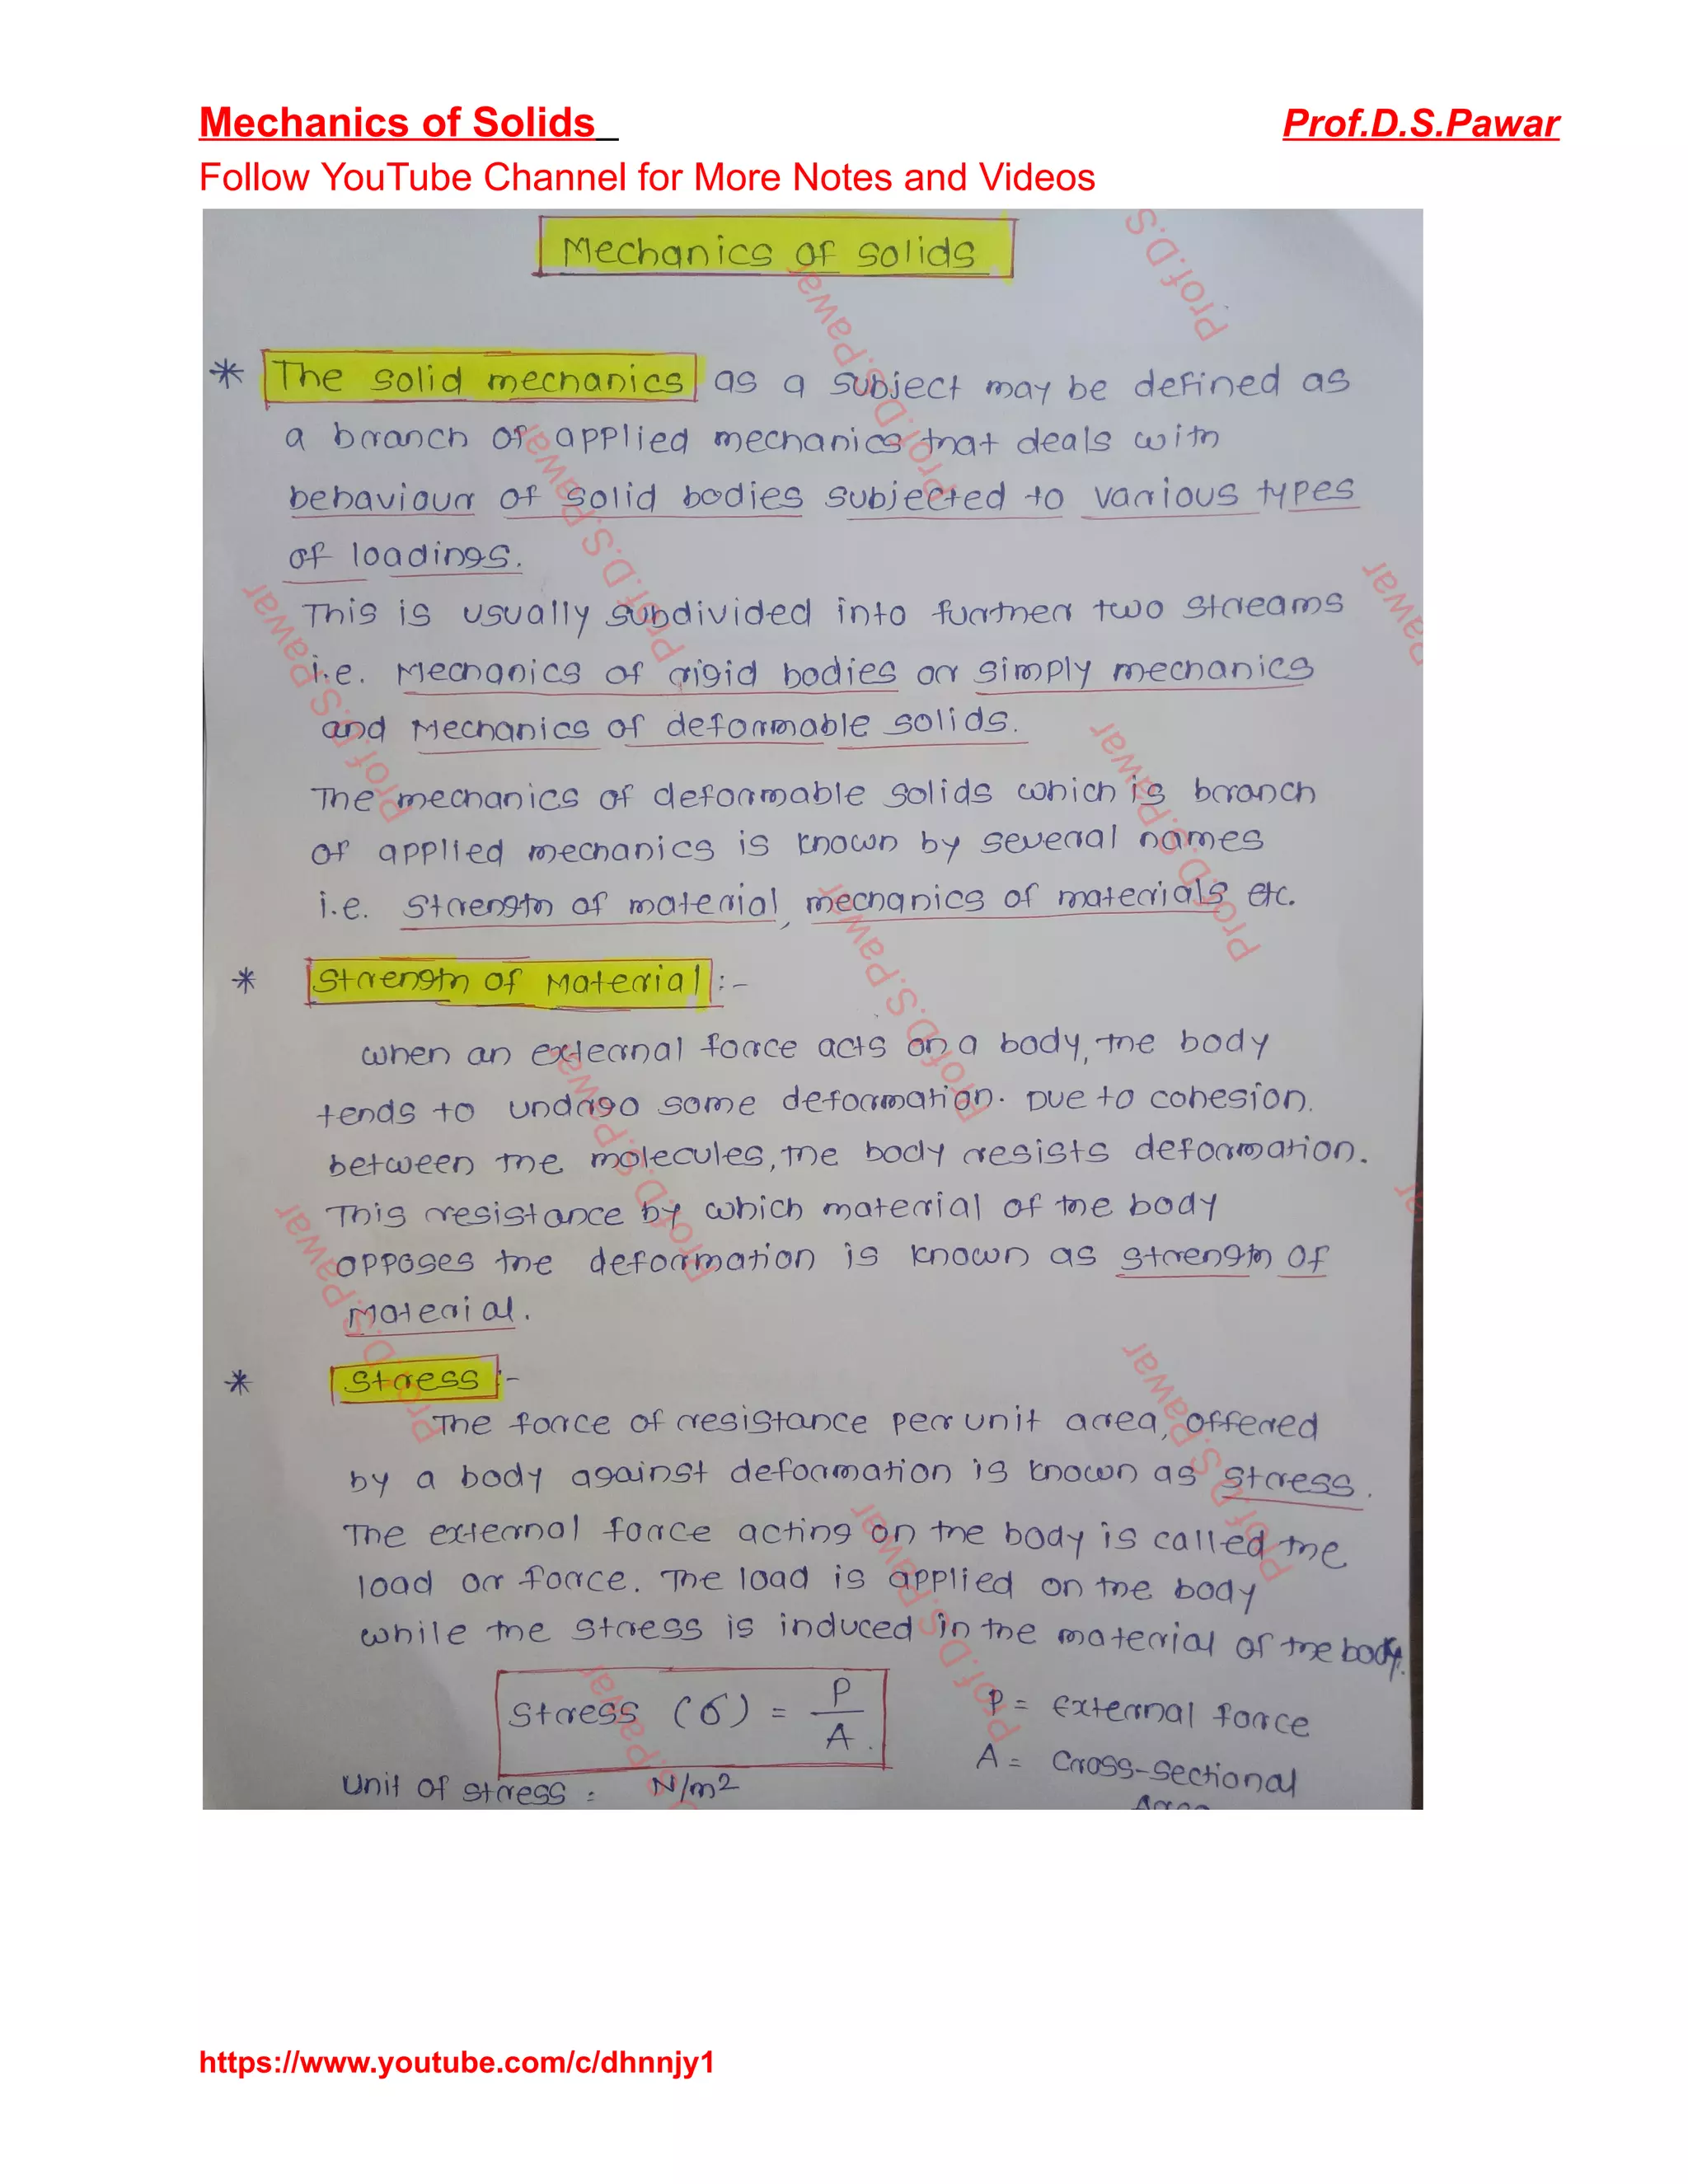 Mechanics of Solids Prof.D.S.Pawar
Follow YouTube Channel for More Notes and Videos
Mechanics of solids
* The solid mechanics as a subject may be defined as
a branch of applied mechanics that deals with
behaviour of solid bodies subjected to various types
of loadings.
This is usually subdivided into further two streams
i.e. Mechanics of rigid bodies or simply mechanics
and Mechanics of deformable solids.
The mechanics of deformable solids which is branch
of applied mechanics is known by several names
i.e. strength of material, mechanics of materials etc.
* Strength of Material :-
when an external force acts on a body, the body
tends to undrgo some deformation. Due to cohesion.
between the molecules, the body resists deformation.
This resistance by which material of the body
opposes the deformation is known as strength of
Material.
* Stress :-
The force of resistance per unit area, offered
by a body against deformation is known as stress.
The external force acting on the body is called the
load or force. The load is applied on the body
while the stress is induced in the material of the body.
Stress (σ) = P/A. P = External force
A = Cross-sectional
Unit of stress : N/m2 Area
Prof.D.S.Pawar
https://www.youtube.com/c/dhnnjy1